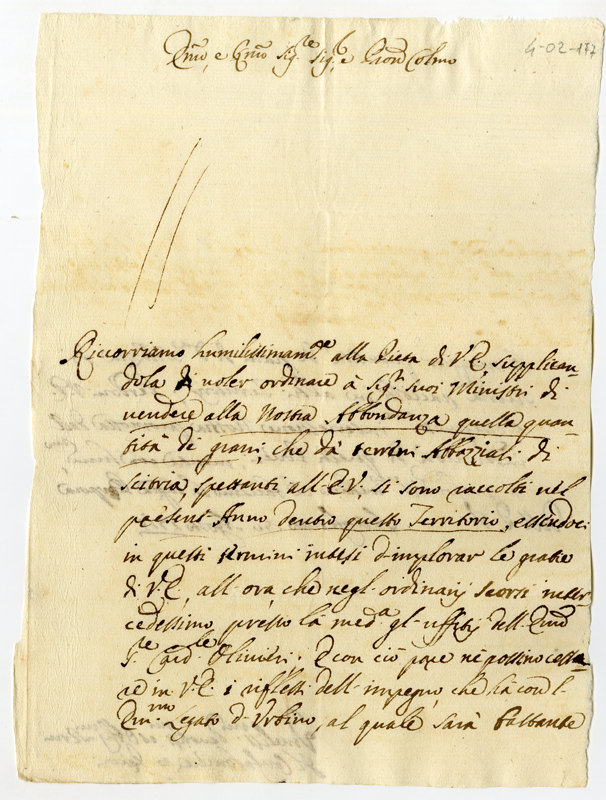 4-02-177
Emo, e Rmo Sigre Sigr, e Pron Colmo
Riccorriamo humilissimamte alla Pietà di V.E. supplican-
dola di voler ordinare à Sigri suoi Ministri di
vendere alla Nostra Abbondanza quella quan-
tità de grani, che dà terreni Abbaziali di
Scitria, spettanti all'E.V. si sono raccolti nel
presente Anno dentro questo Territorio, essendoci
in questi termini intesi d'implorar le grazie
di V.E, all'ora, che negl'ordinarij scorsi inter-
cedessimo presso la meda gl'uffitij dell'Emo
Sre Cardle Olivieri. E con ciò pare né possino cessa-
re in V.E. i riflessi dell'impegno, che hà con l'
Emmo Legato d'Urbino, al quale sarà bastante